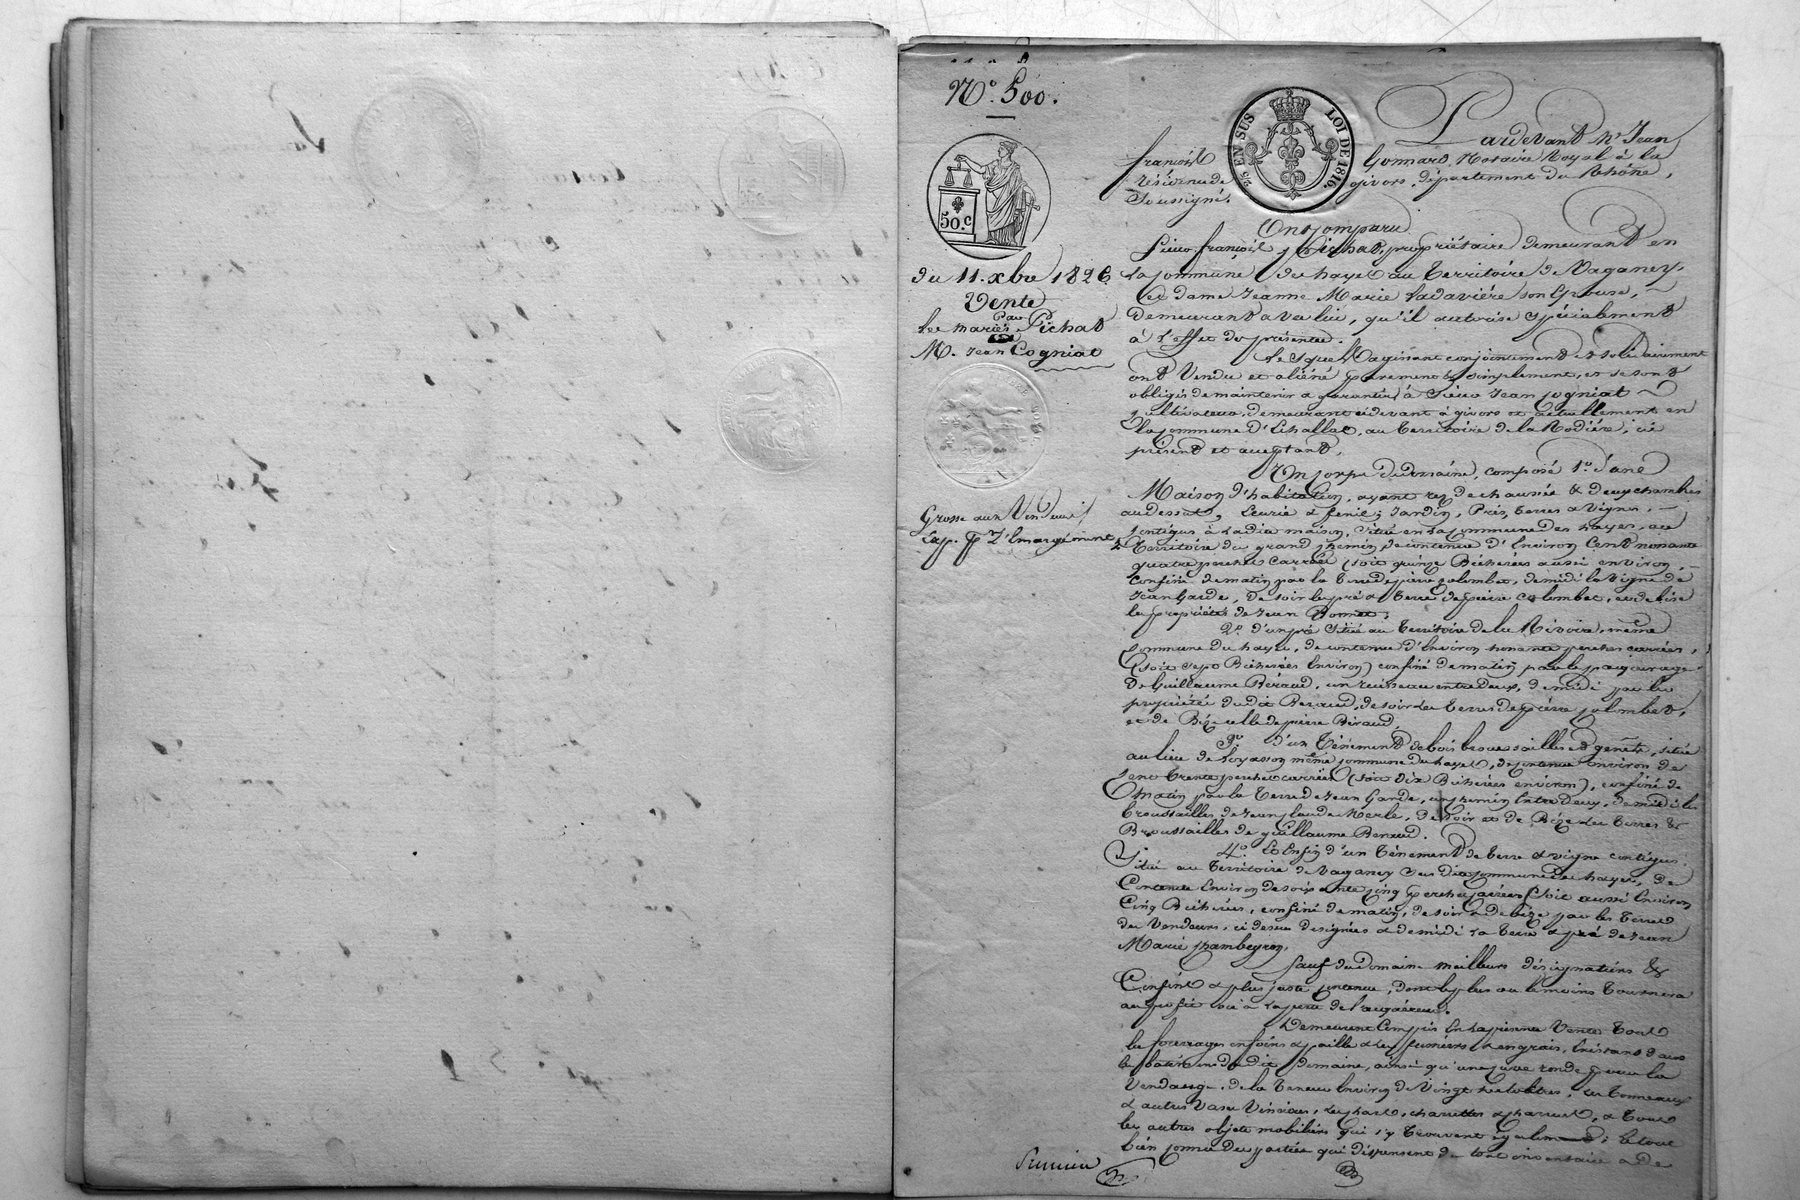 N.° 500.
2/5 EN SUS
LOI DE 1816.
50.c
du 11. xbre 1826
Vente
Par
Les mariés Pichat
M. Jean Cogniat
Grosse aux Vendeurs
Exp. d'Emargement
Pardevant M.e Jean
françois Gonnard, Notaire Royal à la
résidence de givors, département du Rhône,
Soussigné.
Ont Comparu
Sieur françois Pichat, propriétaire demeurant en
la Commune des hayes au territoire de Vaganey,
et dame Jeanne Marie Ladavière son Epouse,
demeurant avec lui, qu'il autorise Spécialement
à l'effet des présentes.
Lesquels agissant conjointement et solidairement
ont Vendu et aliéné purement & simplement, et se sont
obligés de maintenir & garantir, à Sieur Jean Cogniat
Cultivateur, demeurant cidevant à givors et actuellement en
la Commune d'Echallas, au territoire de la Rodière, ici
présent et acceptant,
Un Corps de domaine, composé 1.° d'une
Maison d'habitation, ayant rez de chaussée & deux chambres
au dessus, Ecurie & fenil; Jardin, Prés, terres & Vignes,
Contigus à ladite maison, Situé en la Commune des hayes, au
territoire du grand Chemin de contenue d'Environ Cent nonante
quatre perches Carrées (soit quinze Bicherées aussi environ,
confiné de matin par la terre de pierre Colombet, de midi la Vigne de
Jean Garde, de soir le pré & terre de pierre Colombet, et de bise
la propriété de Jean Bonnet;
2.° d'un pré Situé au territoire de la Rivoire, même
Commune des hayes, de contenue d'Environ nonante perches carrées,
(soit Sept Bicherées Environ) confiné de matin par le paquerage
de Guillaume Béraud, un ruisseau entre deux, de midi par la
propriété dudit Beraud, de soir les terres de pierre Colombet,
et de Bize celle de pierre Béraud.
3.° d'un Ténement de bois broussailles et genets, situé
au lieu de Loyasson même Commune des hayes, de Contenue environ de
Cent trente perches carrées (soit dix Bicherées environ), confiné de
Matin par la terre de Jean Garde, un Chemin Entre Deux, de midi les
broussailles de Jean Claude Merle, de Soir et de Bize les terres &
Broussailles de guillaume Beraud.
4.° Et Enfin d'un Ténement de terre & vigne contigus
Situé au territoire de Vaganey susdite Commune des hayes, de
Contenue Environ de soixante Cinq perches Carrées (Soit aussi Environ
Cinq Bicherées, confiné de matin, de soir & de bize par les terres
des Vendeurs, ci dessus designées & de midi la terre & pré de Jean
Marie Chambeyron,
Sauf du Domaine meilleurs désignations &
Confins & plus juste Contenue, dont le plus ou le moins tournera
au profit ou à la perte de l'acquéreur.
Demeurent Compris En la présente Vente tous
les fourrages en foins & paille & les fumiers & engrais, Existans dans
les batimens dudit Domaine, ainsi qu'une cuve ronde pour la
Vendange, de la teneur Environ de Vingt hectolitres, les tonneaux
& autres Vases Vinaires, les chars, charrettes & charrues, & tous
les autres objets mobiliers qui s'y trouvent également; le tout
bien connu des parties qui dispensent de tout inventaire & de